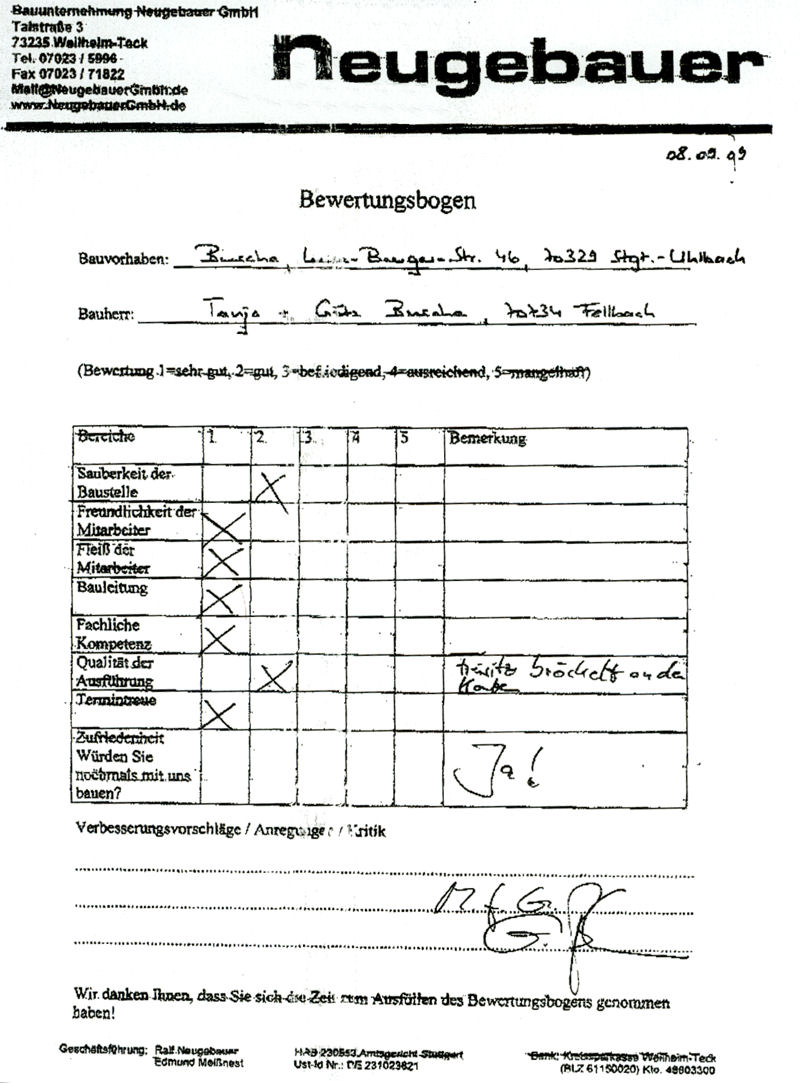 Bauunternehmung Neugebauer GmbH
Talstraße 3
73235 Weilheim-Teck
Tel. 07023 / 5996
Fax 07023 / 71822
Mail@NeugebauerGmbh.de
www.NeugebauerGmbH.de
neugebauer
08.09.99
Bewertungsbogen
Bauvorhaben: Str. 46, 70329 Stgt.-Uhlbach
Bauherr: Tanja + Götz, 70734 Fellbach
(Bewertung 1=sehr gut, 2=gut, 3=befriedigend, 4=ausreichend, 5=mangelhaft)
Bereiche 1. 2. 3. 4 5 Bemerkung
Sauberkeit der
Baustelle X
Freundlichkeit der
Mitarbeiter X
Fleiß der
Mitarbeiter X
Bauleitung X
Fachliche
Kompetenz X
Qualität der bröckelt an den
Ausführung X
Termintreue X
Zufriedenheit
Würden Sie
nochmals mit uns Ja!
bauen?
Verbesserungsvorschläge / Anregungen / Kritik
M.f.G.
Wir danken Ihnen, dass Sie sich die Zeit zum Ausfüllen des Bewertungsbogens genommen
haben!
Geschäftsführung: Ralf Neugebauer
Edmund Meißnest
HAB 230553 Amtsgericht Stuttgart
Ust-Id Nr.: DE 231023621
Bank: Kreissparkasse Weilheim-Teck
(BLZ 61150020) Kto. 48603300